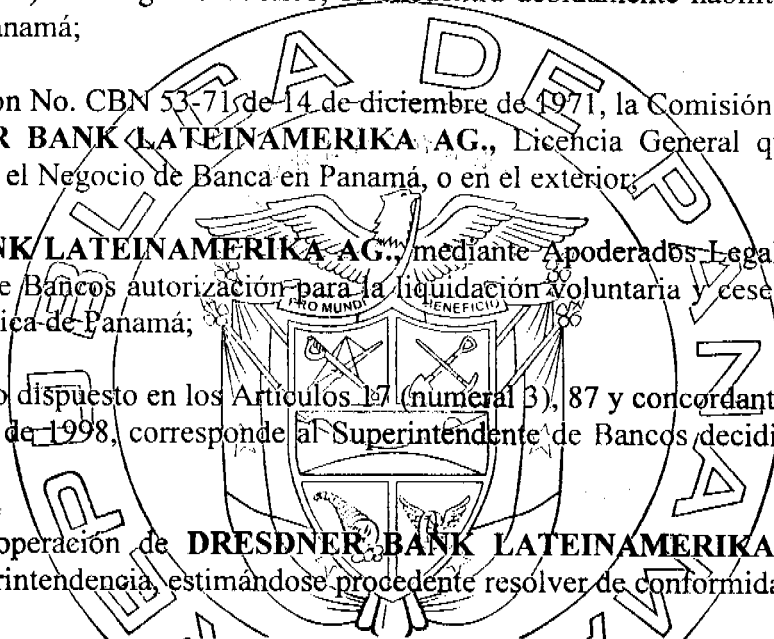 anamá;
on No. CBN 53-71 de 14 de diciembre de 1971, la Comisión
R BANK LATEINAMERIKA AG., Licencia General q
el Negocio de Banca en Panamá, o en el exterior;
NK LATEINAMERIKA AG., mediante Apoderados Legal
e Bancos autorización para la liquidación voluntaria y cese
ica de Panamá;
PRO MUNDI BENEFICIO
o dispuesto en los Artículos 17 (numeral 3), 87 y concordant
de 1998, corresponde al Superintendente de Bancos decidi
operación de DRESDNER BANK LATEINAMERIKA
rintendencia, estimándose procedente resolver de conformida